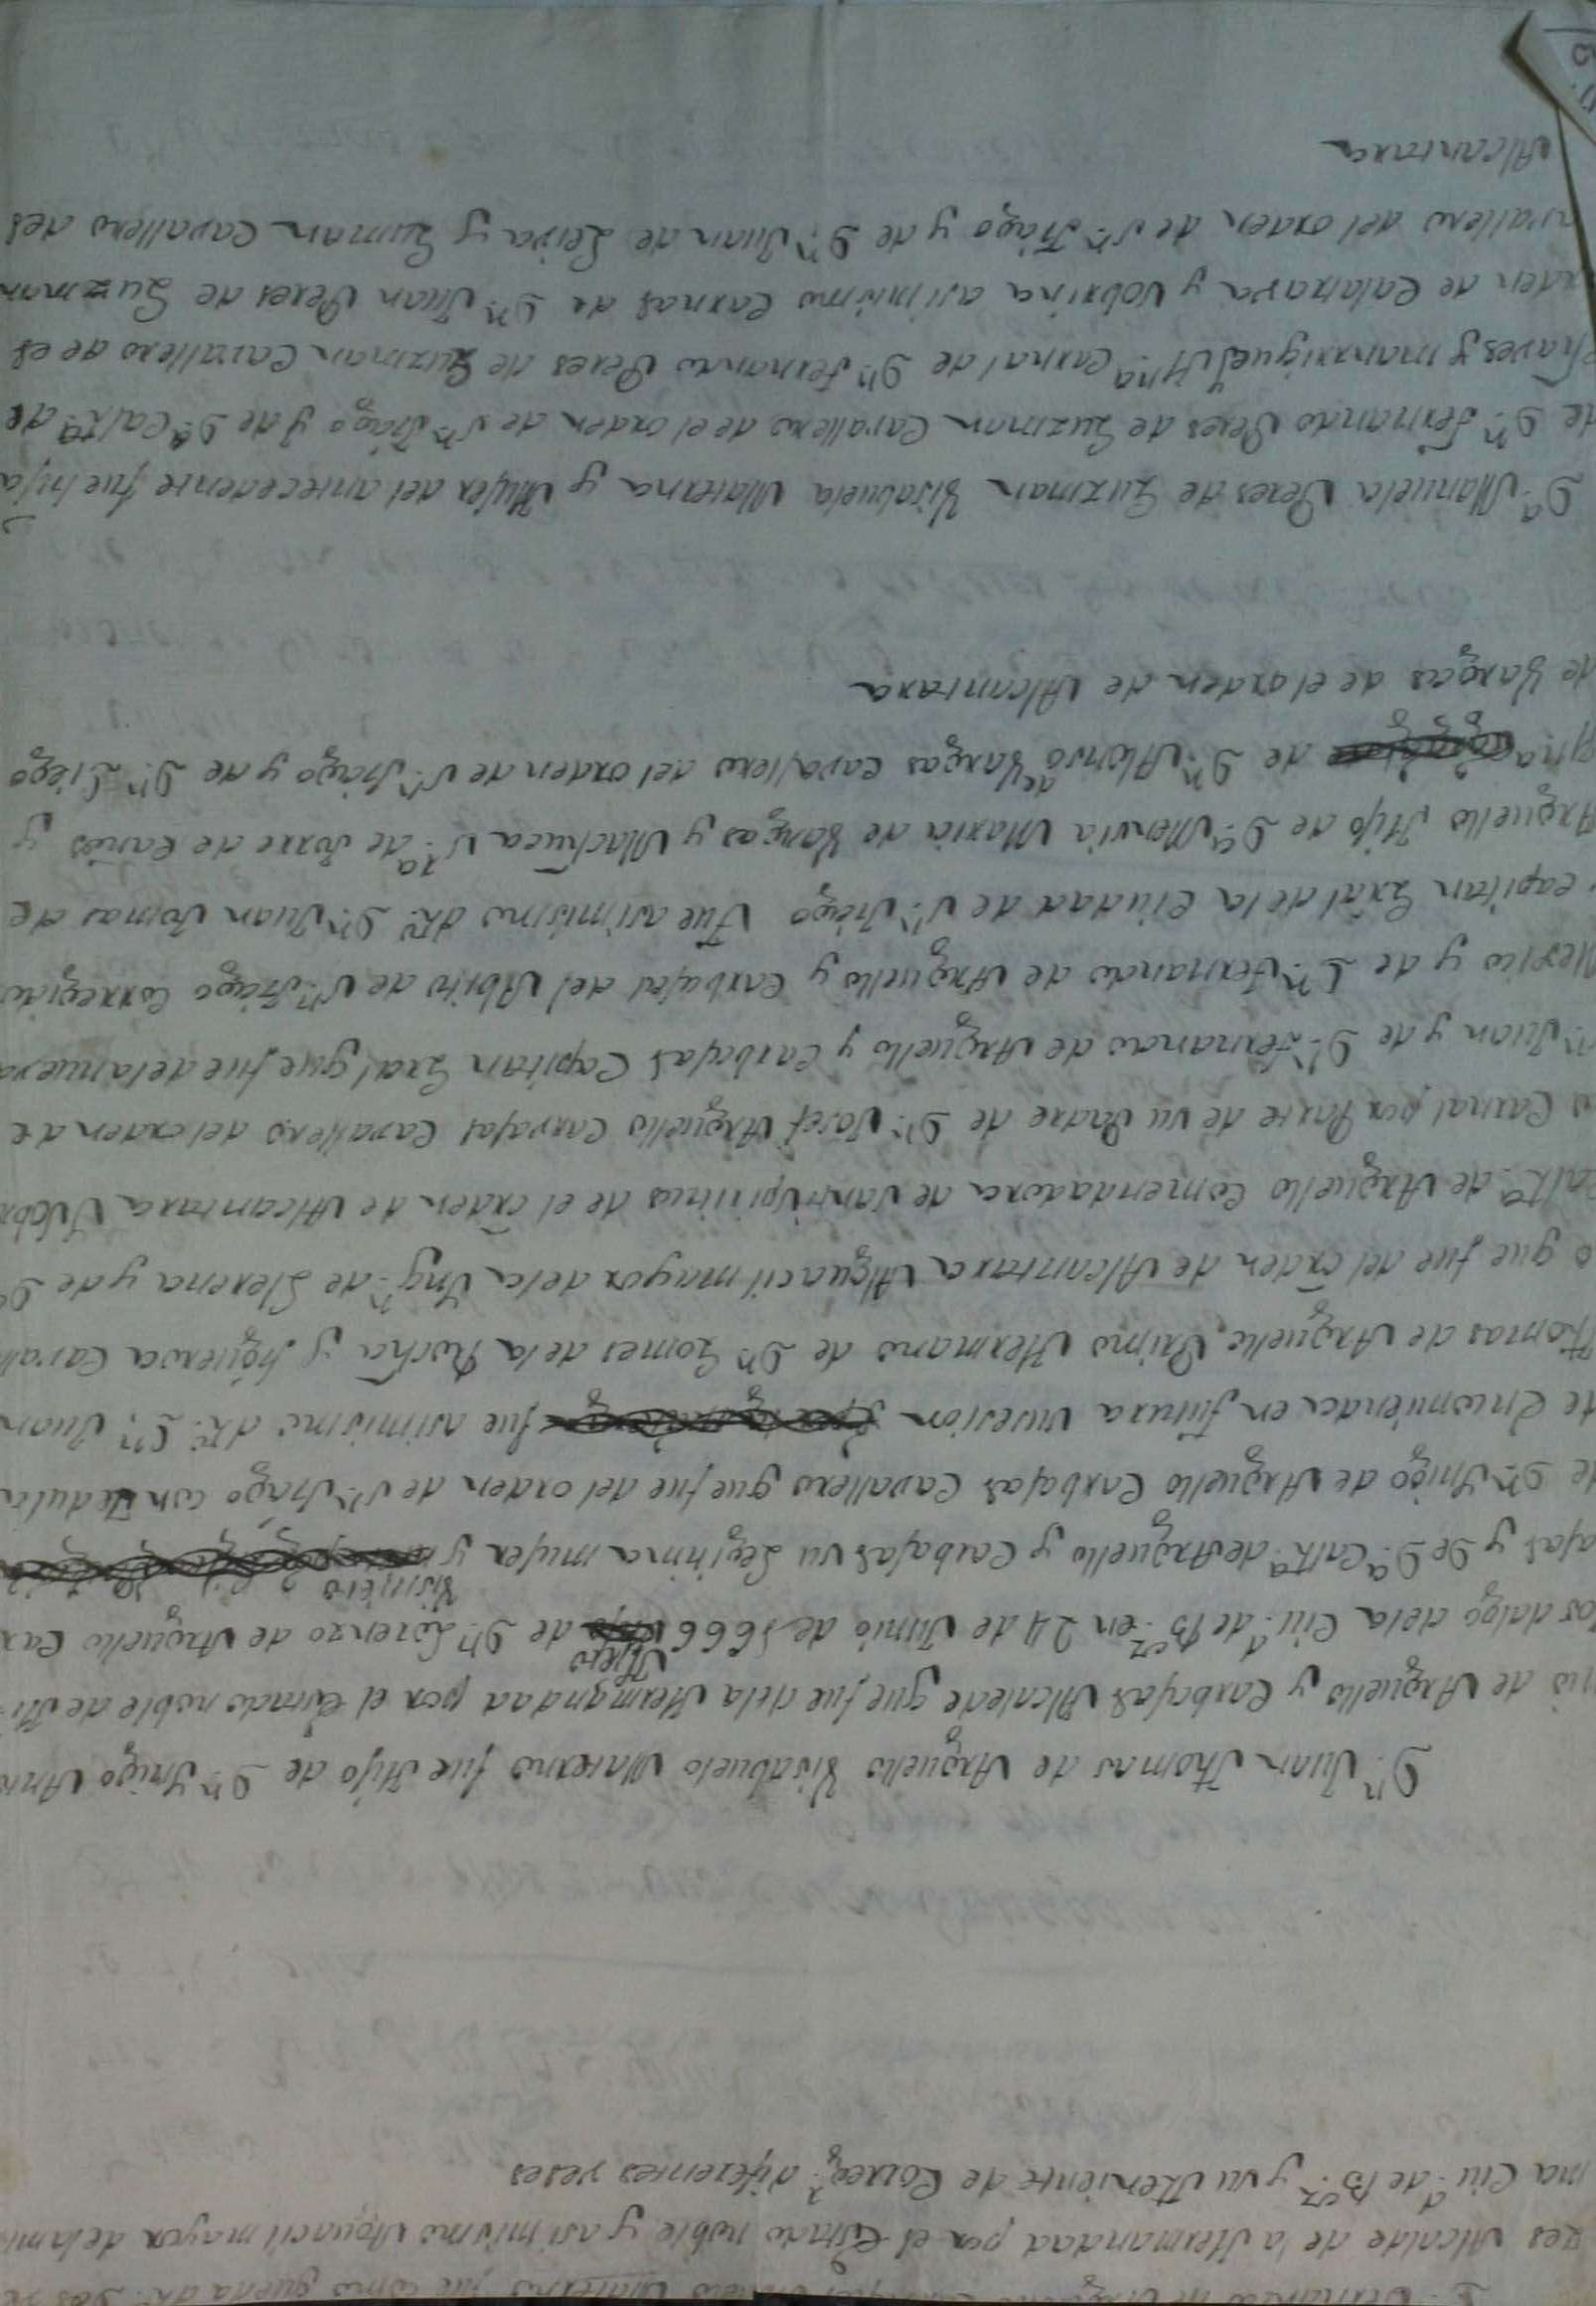 fue como queda dho. dos ve
zes Alcalde de la Hermandad por el Estado noble y asimismo Alguacil mayor de la mis
ma Ciud. de Bez. y su Theniente de Correg.r diferentes veses
Dn. Juan Thomas de Arguello Visabuelo Materno fue Hijo de Dn. Inigo Anto
nio de Arguello y Carbajal Alcalede que fue dela Hermandad por el Estado noble de Hi-
jos dalgo dela Ciud. de Bez. en 24 de Junio de 1666 Nieto de Dn. Lorenzo de Arguello Car
bajal y De Da. Catha. de Arguello y Carbajal su Legitima mujer y Visnieto
de Dn. Inigo de Arguello Carbajal Cavallero que fue del orden de Sn. Tiago con Zedula
de Encomienda en futura susesion fue asimismo dho. Dn. Juan
Thomas de Arguello, Primo Hermano de Dn. Gomes dela Rocha y figueroa Cavall
o que fue del orden de Alcantara Alguacil mayor dela Ynqn. de Llerena y de Da
Catha. de Arguello Comendadora de Santispiritus de el orden de Alcantara Sobri
o Carnal por Parte de su Padre de Dn. Josef Arguello Carvajal Cavallero del orden de
Sn. Juan y de Dn. Fernando de Arguello y Carbajal Capitan Gral que fue dela nueva
Mexico y de Dn. Fernando de Arguello y Carbajal del Abito de Sn. Tiago Correxidor
y capitan Gral de la Ciudad de Sn. Tiago Fue asimismo dho. Dn. Juan Tomas de
Arguello Hijo de Da. Mensia Maria de Vargas y Machuca Sra. de Torre de Caños y
de Dn. Alonso de Vargas Cavallero del orden de Sn. Tiago y de Dn. Diego
de Vargas de el orden de Alcantara
Da. Manuela Peres de Guzman Visabuela Materna y Mujer del antecedente fue hija
de Dn. Fernando Peres de Guzman Cavallero de el orden de Sn. Tiago y de Da. Catha. de
Chaves y manrrique Carnal de Dn. Fernando Peres de Guzman Cavallero de el
orden de Calatrava y Sobrina asimismo Carnal de Dn. Juan Peres de Guzman
Cavallero del orden de Sn. Tiago y de Dn. Juan de Leiva y Guzman Cavallero del
Alcantara